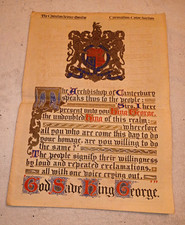 The Christian Science Monitor
Coronation Color Section
The Archbishop of Canterbury
speaks thus to the people:
Sirs, I here
present unto you King George,
the undoubted King of this realm
Wherefore
all you who are come this day to do
your homage, are you willing to do
the same?
The people signify their willingness
by loud and repeated exclamations,
all with one voice crying out
God Save King George.